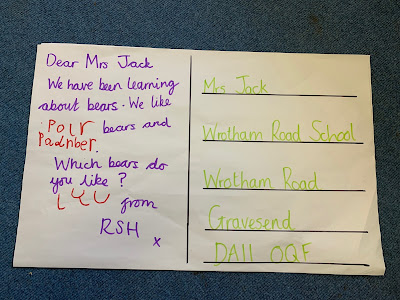 Dear Mrs Jack
We have been learning
about bears. We like
Polr bears and
Padnber.
Which bears do
you like?
from
RSH
x
Mrs Jack
Wrotham Road School
Wrotham Road
Gravesend
DA11 0QF